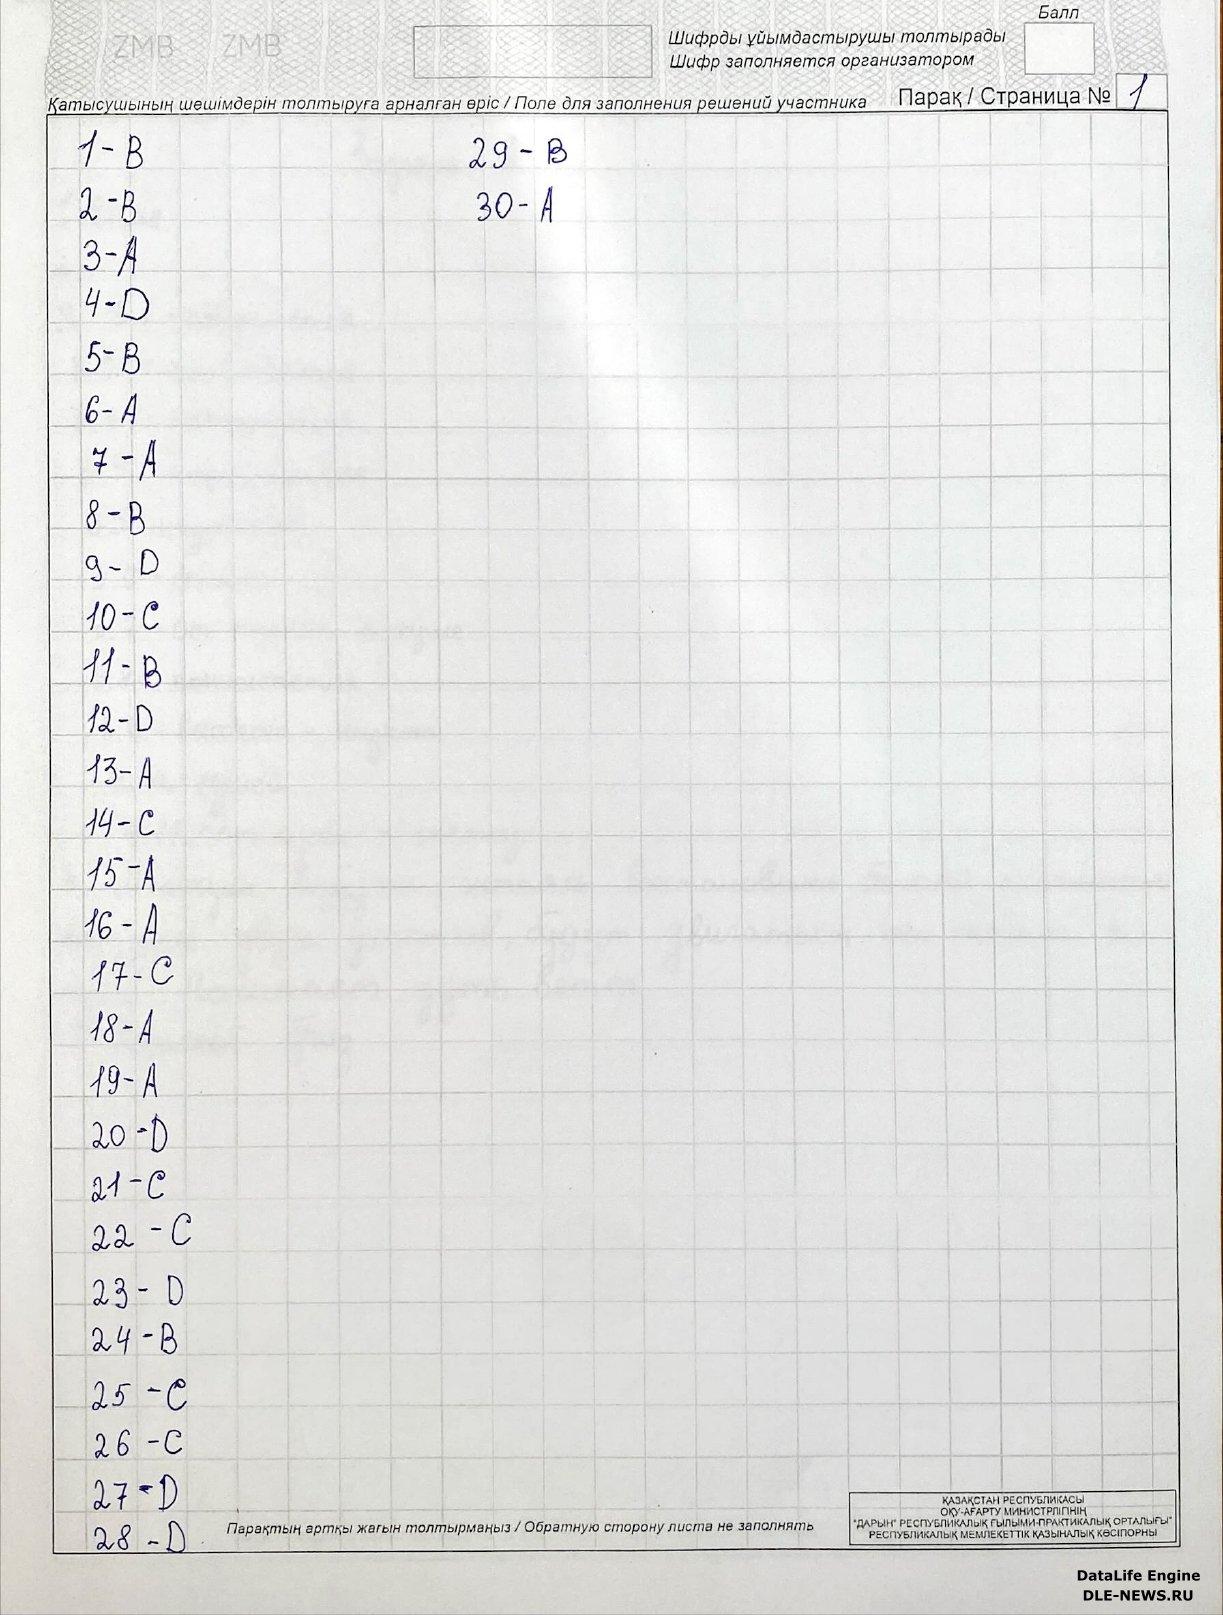 ZMB ZMB
Балл
Шифрды ұйымдастырушы толтырады
Шифр заполняется организатором
Қатысушының шешімдерін толтыруға арналған өріс / Поле для заполнения решений участника
Парақ / Страница № 1
1 - B
2 - B
3 - A
4 - D
5 - B
6 - A
7 - A
8 - B
9 - D
10 - C
11 - B
12 - D
13 - A
14 - C
15 - A
16 - A
17 - C
18 - A
19 - A
20 - D
21 - C
22 - C
23 - D
24 - B
25 - C
26 - C
27 - D
28 - D
29 - B
30 - A
Парақтың артқы жағын толтырмаңыз / Обратную сторону листа не заполнять
ҚАЗАҚСТАН РЕСПУБЛИКАСЫ
ОҚУ-АҒАРТУ МИНИСТРЛІГІНІҢ
"ДАРЫН" РЕСПУБЛИКАЛЫҚ ҒЫЛЫМИ-ПРАКТИКАЛЫҚ ОРТАЛЫҒЫ"
РЕСПУБЛИКАЛЫҚ МЕМЛЕКЕТТІК ҚАЗЫНАЛЫҚ КӘСІПОРНЫ
DataLife Engine
DLE-NEWS.RU